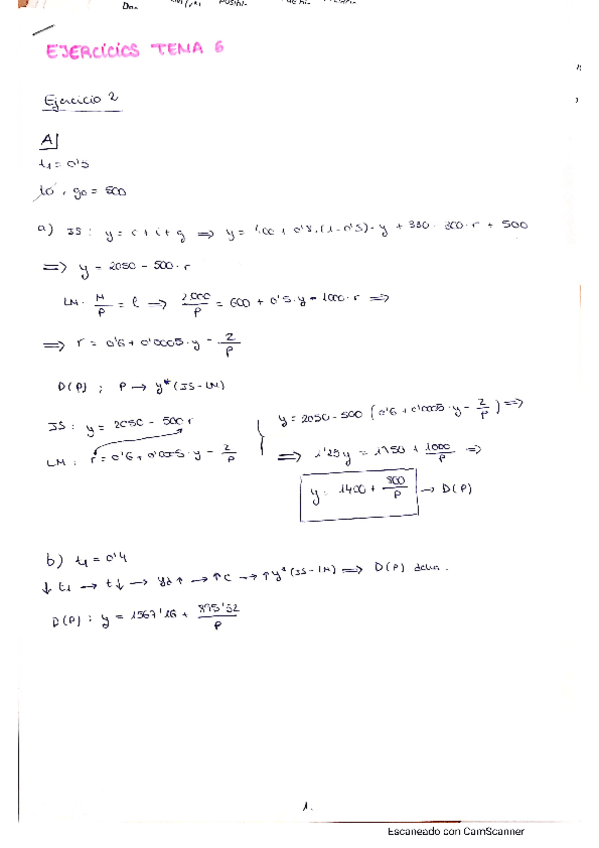 EJERCICIOS TEMA 6
Ejercicio 2
A|
t₁ = 0'5
g₀ = 500
a) IS: y = c + i + g ⟹ y = 400 + 0'8·(1-0'5)·y + 330 - 300·r + 500
⟹ y = 2050 - 500·r
LM: M/P = l ⟶ 2000/P = 600 + 0'5·y - 1000·r ⟹
⟹ r = 0'6 + 0'0005·y - 2/P
D(P) ; P → y*(IS-LM)
IS: y = 2050 - 500r
LM: r = 0'6 + 0'0005·y - 2/P
y = 2050 - 500 (0'6 + 0'0005·y - 2/P) ⟹
⟹ 1'25y = 1750 + 1000/P ⟹
y = 1400 + 800/P → D(P)
b) t₁ = 0'4
↓t₁ → t↓ → yd↑ → ↑c → ↑y*(IS-LM) ⟹ D(P) dcha.
D(P): y = 1567'16 + 895'52/P
1.
Escaneado con CamScanner